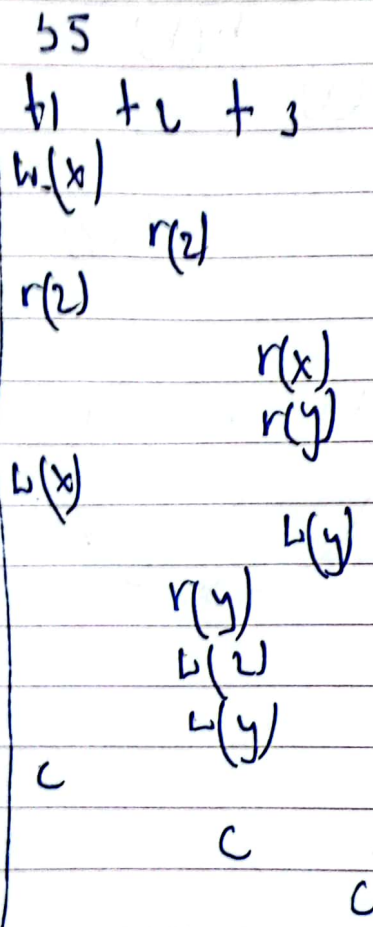 S5
t1 t2 t3
w(x)
r(z)
r(z)
r(x)
r(y)
w(x)
w(y)
r(y)
w(z)
w(y)
c
c
c